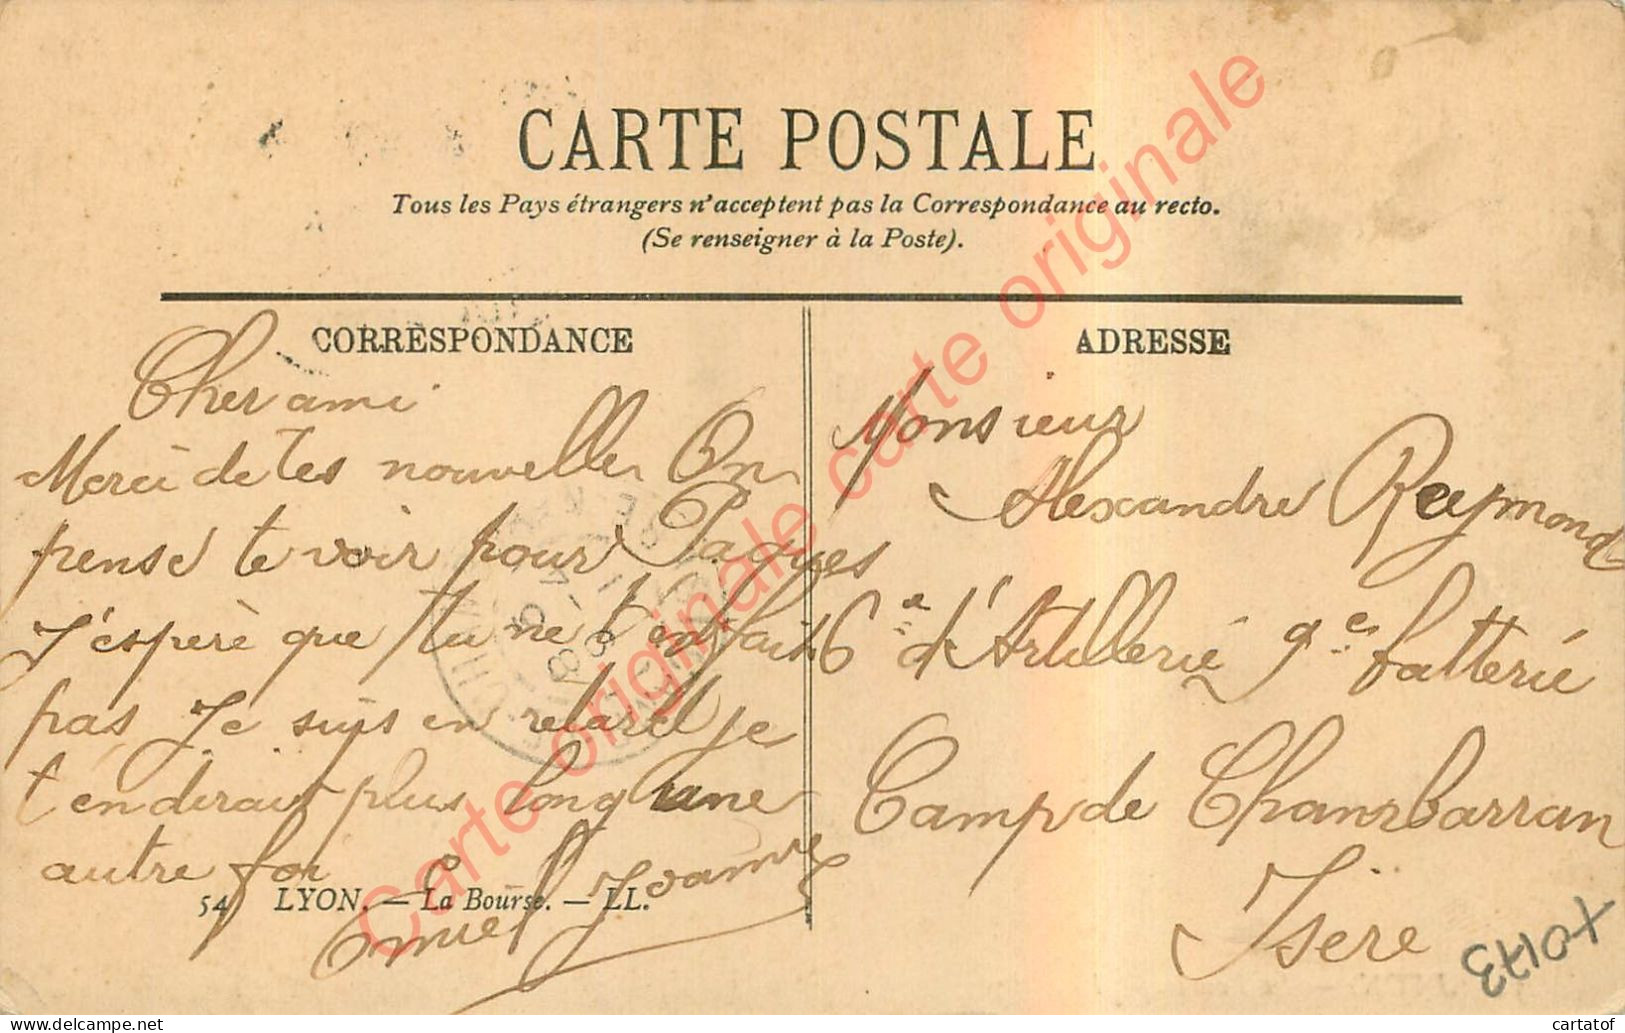 CARTE POSTALE
Tous les Pays étrangers n'acceptent pas la Correspondance au recto.
(Se renseigner à la Poste).
CORRESPONDANCE
Cher ami
Merci de tes nouvelles On
pense te voir pour Paques
J'espère que tu ne t'en fait
pas Je suis en retard je
t'endirait plus long une
autre foi
54 LYON. — La Bourse. — LL.
ADRESSE
Monsieur
Alexandre Reymond
6e d'Artillerie 9e batterie
Camp de Chambarran
Isère
Carte originale carte originale
Carte originale carte originale
cartatof